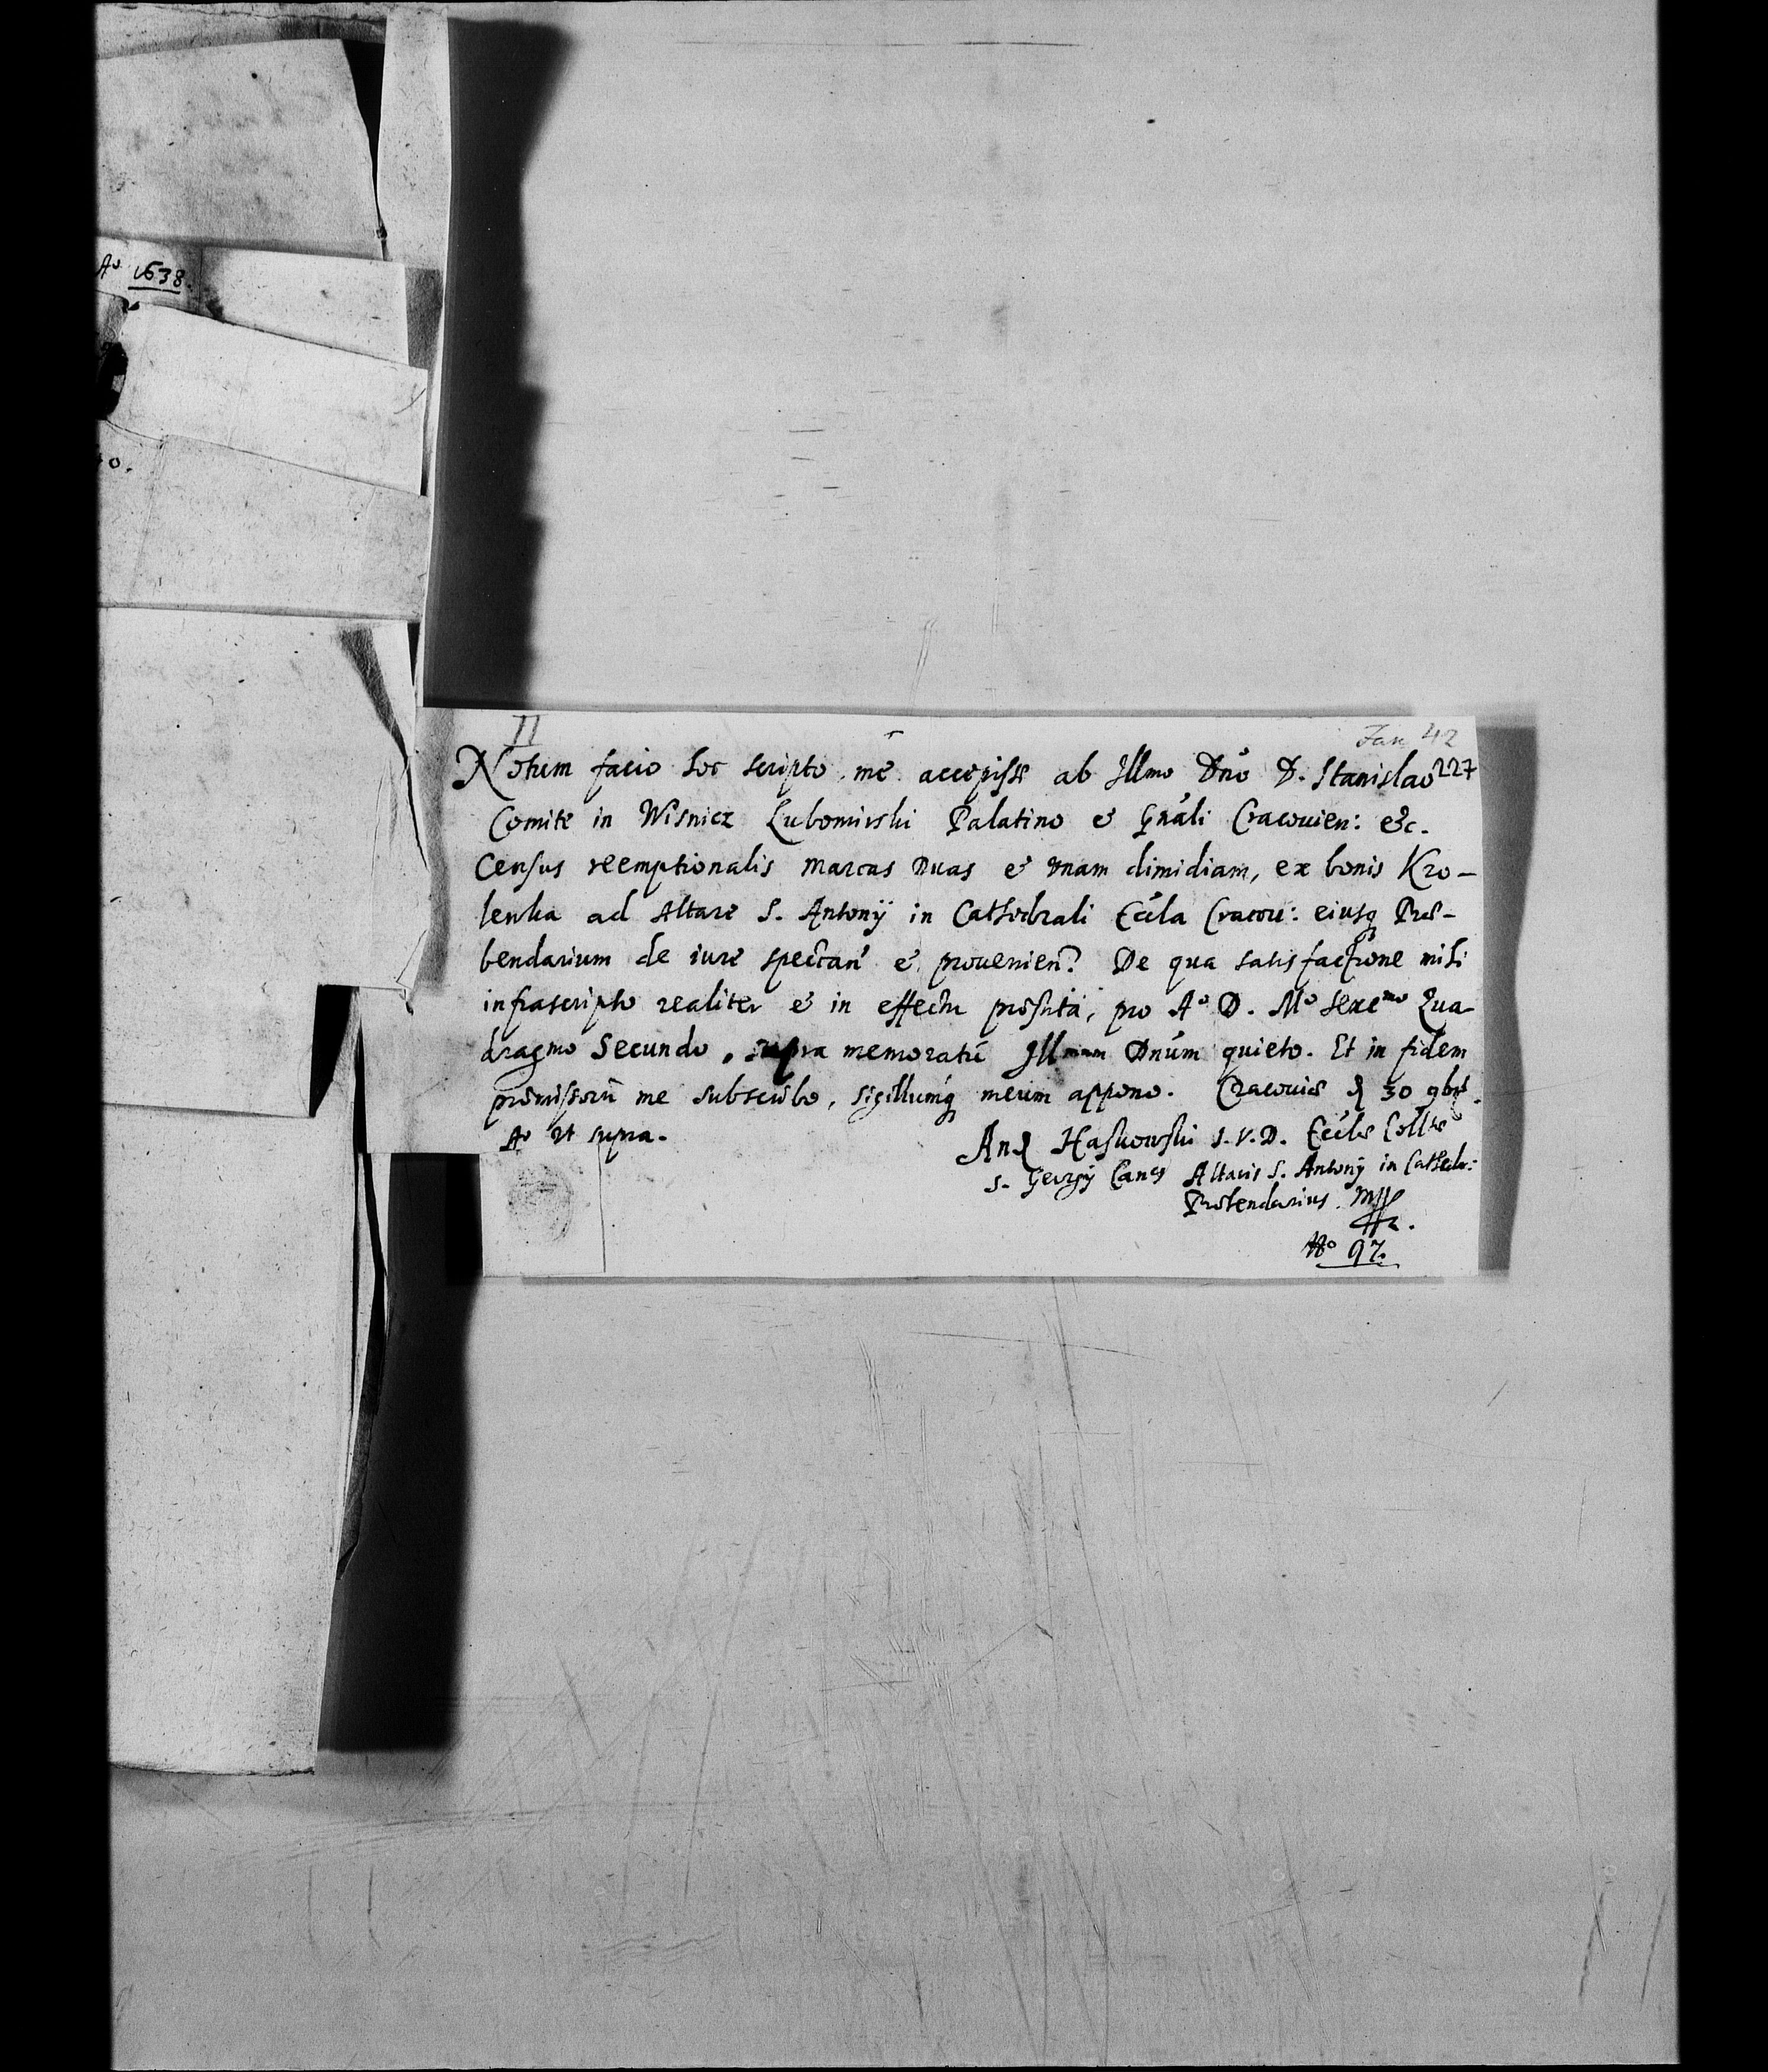 Aº 1638.
o.
II
Jan 42
227
Notum facio hoc scripto me accepisse ab Illmo Dno D. Stanislao
Comite in Wisnicz Lubomirski Palatino et Gnali Cracouien: etc.
Census reemptionalis marcas duas et vnam dimidiam, ex bonis Kro-
lenka ad Altare S. Antonij in Cathedrali Eccla Cracou: eiusq Præ-
bendarium de iure spectan et prouenien. De qua satisfactione mihi
infrascripto realiter et in effectu præstita, pro Aº D. Mº sexcmo Qua-
dragmo Secundo, supra memoratũ Illmum Dnum quieto. Et in fidem
præmissorũ me subscribo, sigillumq meum appono. Cracouiæ d 30 9bris.
Aº vt supra.
And Haskowski I.V.D. Ecclæ Colltæ
S. Georgij Canus Altaris S. Antonij in Cathedr:
Præbendarius mp
Nº 97.